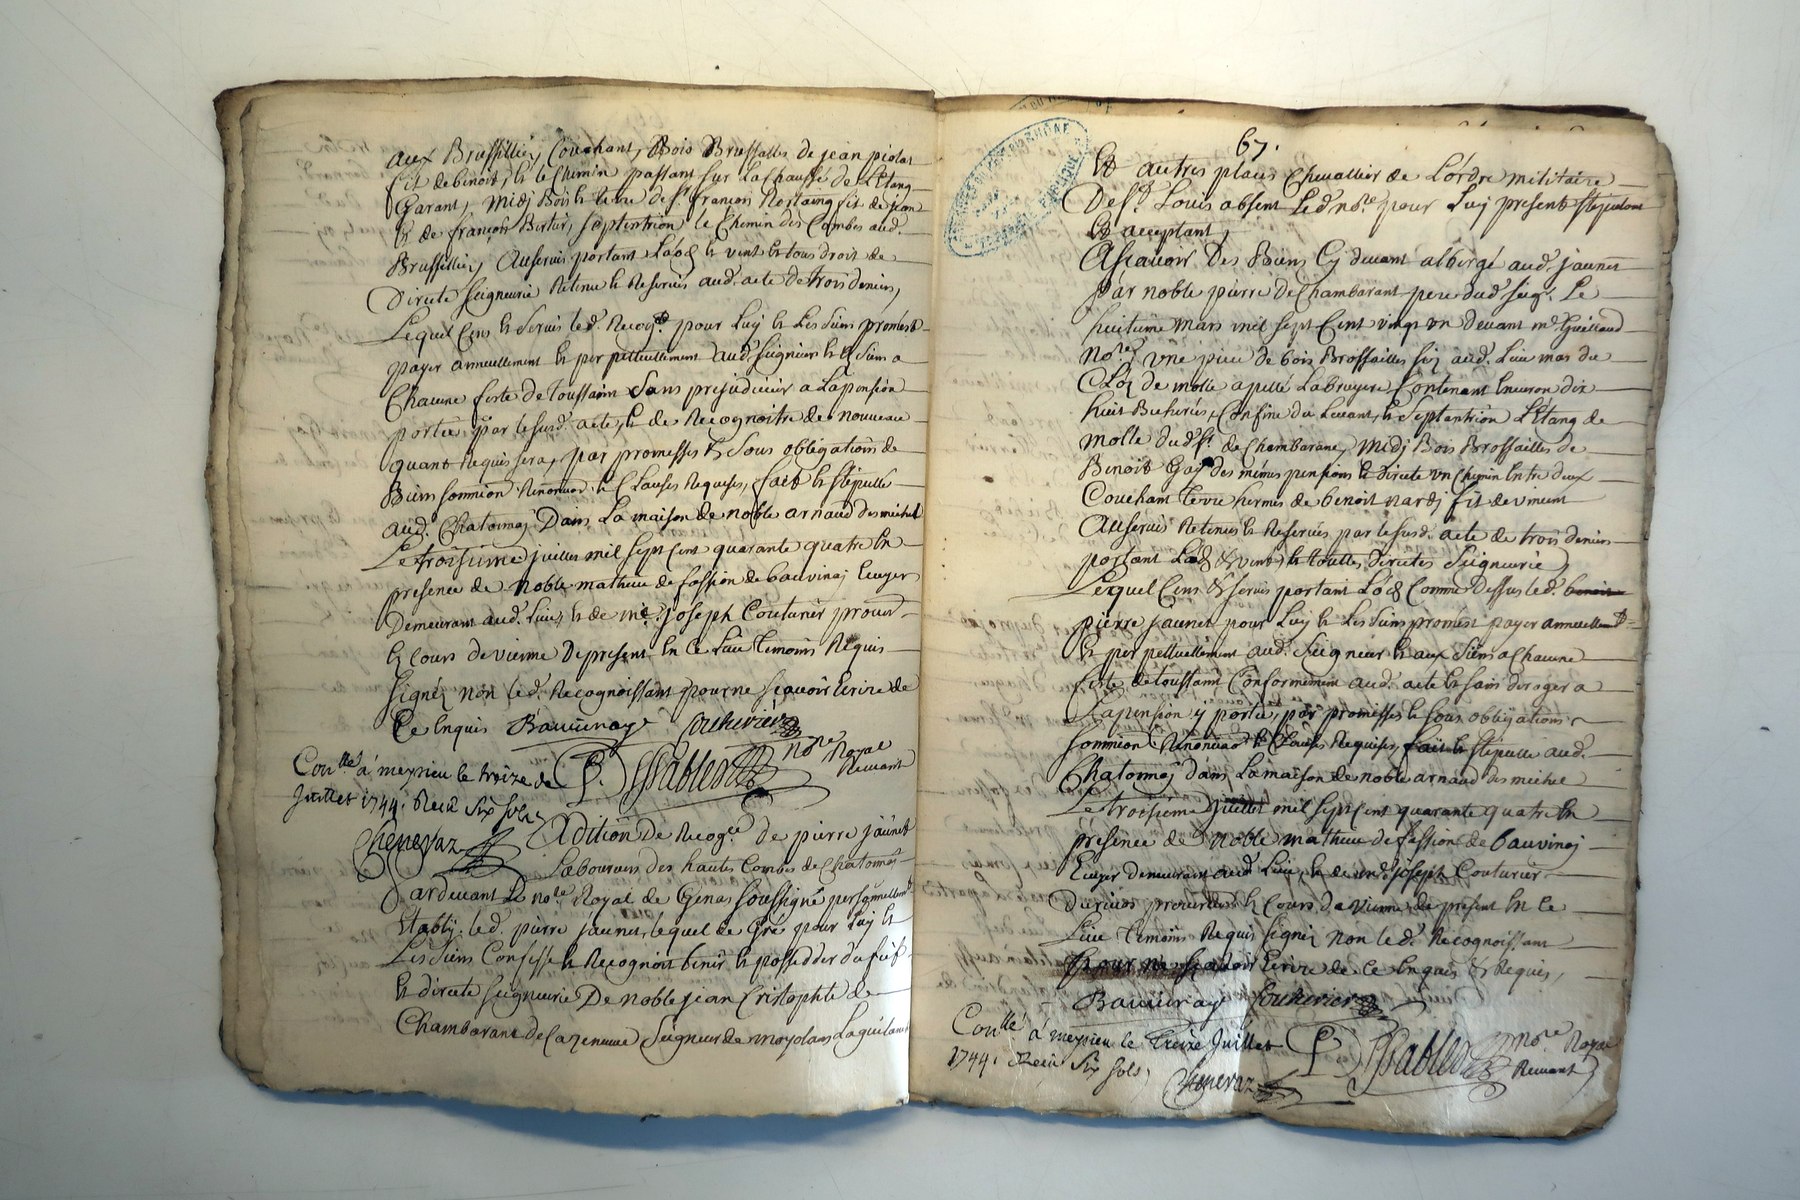 aux Brussillier, Couchant, Bois Brussalles de jean piolat
fit de benoit, & le Chemin passant sur La Chaussé de L'Etang
Garant, midj Bois & terre de sr. françois Rostaing fit de jean
& de françois Bertur, septentrion le Chemin des Combes aud.
Brussillier, Auservis portant Lods & vent & tous droit de
Directe seigneurie Retenu & Reservés aud. acte de trois deniers,
Lequel Cens & servis led. Recogt. pour Luy & Les siens promest
payer annuellement & perpettuellement aud. seigneur & & siens a
Chacune feste de Toussaint sans prejudicier a La pension
portée par le susd. acte, & de Recognoitre de nouveau
quant Requis sera, par promesses & sous obligations de
Biens sommion Renonuon & Clauses Requises, fait & stipullé
aud. Chatonnaj Dans La maison de noble arnaud desmichel
Le troisieme juillet mil sept Cent quarante quatre En
presence de Noble mathieu de fassion de bauvinaj Ecuyer
Demeurant aud. Lieu, & de me. joseph Couturier procur.
Es Cours de vienne De present En Ce Lieu Temoins Requis
signés non led. Recognoissant pour ne sçavoir Ecrire de
Ce Enquis Bauuinay Couturier
P. Sablerd nore. Royal
Recevant
Conllé á meyrieu le treize de
Juillet 1744. Reçu six sols
Chenevaz
Adition De Recogce. de pierre jaunet
Laboureur des hautes Combes de Chatonnay
Pardevant Le nore. Royal de Genas soussigné personnellement
Etablj led. pierre jaunet, lequel de Gré pour Luy &
Les siens Confesse & Recognoit tenir & possedder du fief
& directe seigneurie De noble jean Cristophle de
Chambarant de Cazeneuve Seigneur de moydans Laguilaum
67.
Et autres places Chevallier de L'ordre militaire
De st. Louis absent Led. nore. pour Luy present stipulant
Et acceptant,
Ascavoir Des Biens Cy devant albergé aud. jaunet
par noble pierre de Chambarant pere dud. seigr. Le
huitieme mars mil sept Cent vingt un devant me. Guillaud
nore. une piece de bois Brossailles sis aud. Lieu mas du
Clos de molle apellé La Bruyere Contenant Environ dix
huit Bicherées, Confine du Levant, & septantrion L'Etang de
molle dud. sr. de Chambarant, Midj Bois Brossailles de
Benoit Gay des mêmes pensions & directe un Chemin Entre deux
Couchant Terre hermes de benoit nardj fit de vincent
Auservis Retenus & Reservés par le susd. acte de trois deniers
portant Lods & vent, & touttes directes Seigneurie,
Lequel Cens & servis portant Lods Comme Dessus led. benoit
pierre jaunet pour Luy & Les siens promest payer annuellement
& perpettuellement aud. seigneur & aux siens a Chacune
feste de toussaint Conformement aud. acte & sans deroger a
La pension y portée, par promesses & sous obligations
sommion Renonuon & Clauses Requises, fait & stipullé aud.
Chatonnaj dans La maison de noble arnaud des michel
Le troisieme juillet mil sept Cent quarante quatre En
presence de noble mathieu de fassion de bauvinaj
Ecuyer demeurant aud. Lieu, & de me. joseph Couturier
procureur Es Cours de vienne de present En Ce
Lieu Temoins Requis signés non led. Recognoissant
pour ne sçavoir Ecrire de Ce Enquis & Requis,
Bauuinay Couturier
P. Sablerd nore. Royal
Recevant
Conllé á meyrieu le Treize Juillet
1744. Reçu Six sols,
Chenevaz